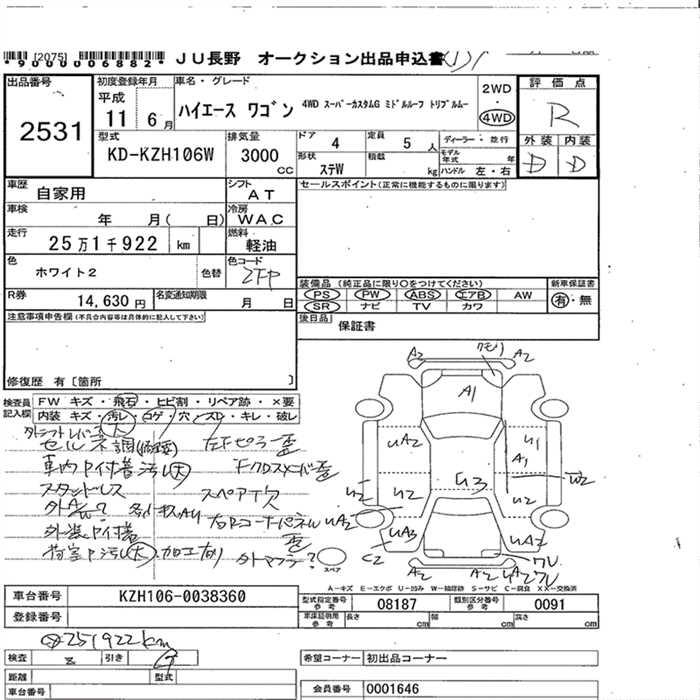 [2075]
*9000006882* JU長野 オークション出品申込書
出品番号 2531
初度登録年月 平成 11 6月
車名・グレード ハイエース ワゴン 4WD スーパーカスタムG ミドルルーフ トリプルムー
2WD ・ 4WD
評価点 R
型式 KD-KZH106W
排気量 3000 cc
ドア 4 定員 5 人
形状 ステW 積載 kg
ディーラー・並行
モデル年式 年
ハンドル 左・右
外装 内装
D D
車歴 自家用
シフト AT
セールスポイント(正常に機能するものに限ります)
車検 年 月( 日)
冷房 WAC
走行 25万1千922 km
燃料 軽油
色 ホワイト2 色替
色コード 2FP
R券 14,630円
名変通知期限 月 日
装備品 (純正品に限り○をつけてください)
PS PW ABS エアB AW
SR ナビ TV カワ
新車保証書 有・無
注意事項申告欄(不具合内容等は具体的に記入して下さい)
後日品 保証書
修復歴 有〔箇所 〕
検査員記入欄
FW キズ・飛石・ヒビ割・リペア跡・×要
内装 キズ・汚レ・コゲ・穴・スレ・キレ・破レ
外シフトレバー
セル不調(修理要) 左Fピラー歪
車内P付着汚レ(大) Fクロスメンバー歪
スタッドレス スペア欠
外AW?
右Rコーナーパネル歪
外装P付着
荷室P汚レ(大)、加工有り 外マフラー?
スペア
A2 クモリ A2
A1
UA2 U1
A1
U2 U2 U3 U2 W2
UA2 UA3 UA2
C2 A2 A2 UA2 7U
7U
A-キズ E-エクボ U-凹み W-補修跡 S-サビ C-腐食 XX-交換済
車台番号 KZH106-0038360
登録番号
型式指定番号 参考 08187
類別区分番号 参考 0091
車庫証明用 参考 長さ cm 幅 cm 高さ cm
251922km
検査 引き
距離 型式
車台番号
希望コーナー 初出品コーナー
会員番号 0001646